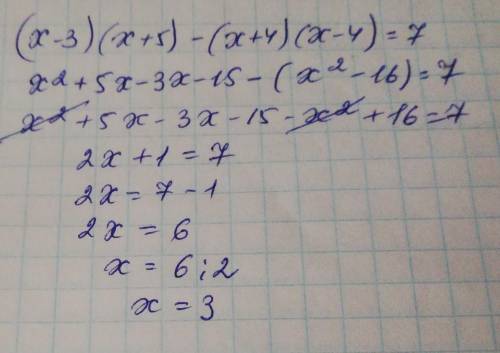 (x-3)(x+5)-(x+4)(x-4)=7
x²+5x-3x-15-(x²-16)=7
x²+5x-3x-15-x²+16=7
2x+1=7
2x=7-1
2x=6
x=6:2
x=3